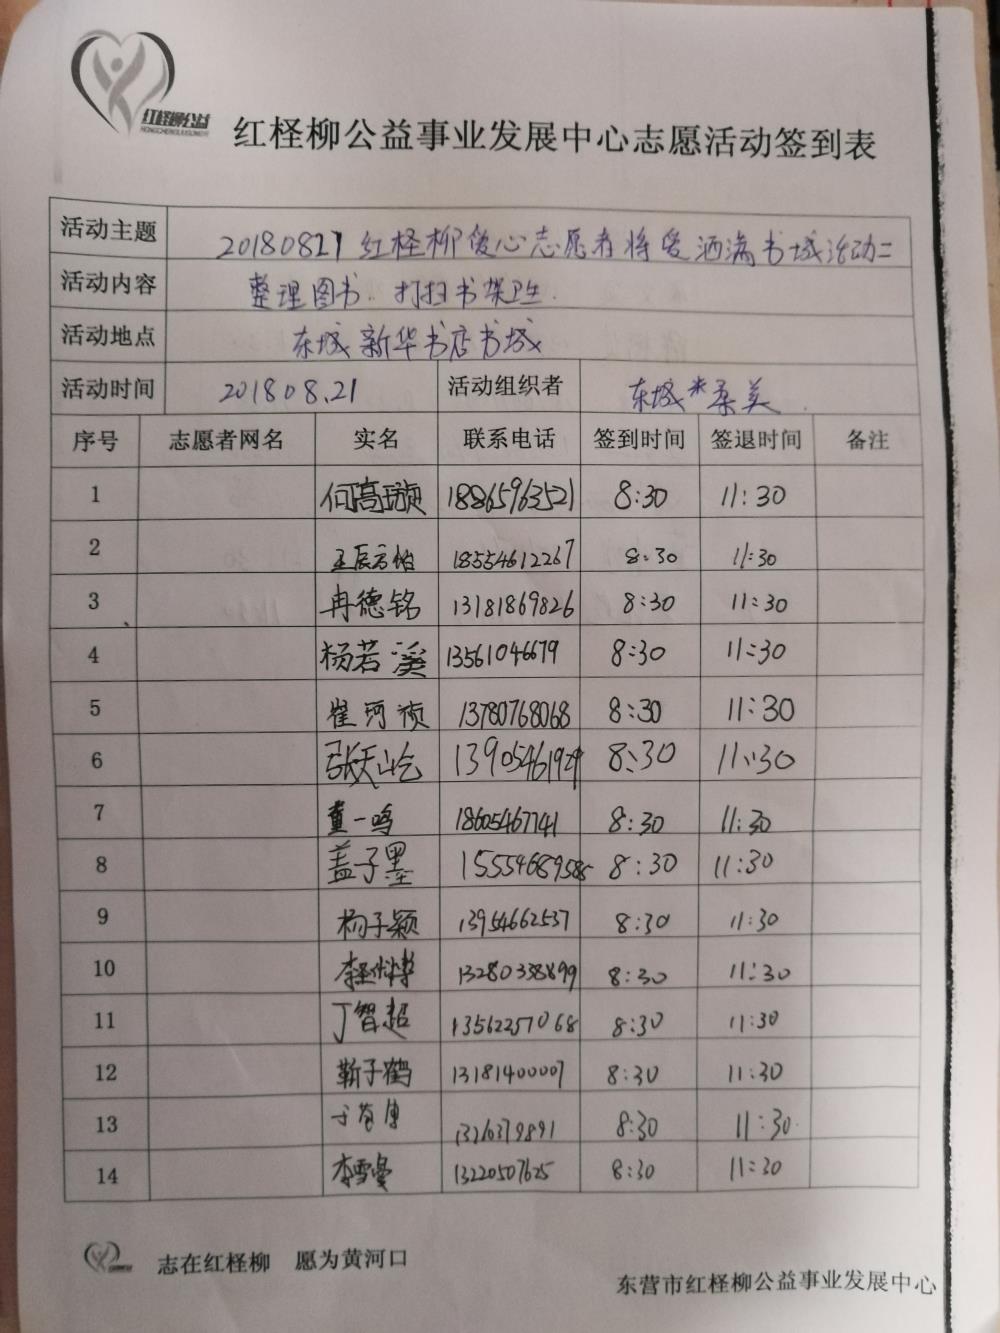 红柽柳公益
红柽柳公益事业发展中心志愿活动签到表
活动主题 20180821红柽柳爱心志愿者将爱洒满书城活动二
活动内容 整理图书、打扫书架卫生.
活动地点 东城新华书店书城
活动时间 201808.21 活动组织者 东城*柔美
序号 志愿者网名 实名 联系电话 签到时间 签退时间 备注
1 18865963521 8:30 11:30
2 王辰方怡 18554612267 8:30 11:30
3 冉德铭 13181869826 8:30 11:30
4 杨若溪 13561046679 8:30 11:30
5 崔珂祯 13780768068 8:30 11:30
6 张天屹 13905461929 8:30 11:30
7 董一鸣 18605467741 8:30 11:30
8 盖子墨 15554689585 8:30 11:30
9 杨子颖 13954662537 8:30 11:30
10 13280338899 8:30 11:30
11 丁智超 13562257068 8:30 11:30
12 靳子鹤 13181400007 8:30 11:30
13 8:30 11:30
14 李雪曼 13220507625 8:30 11:30
志在红柽柳 愿为黄河口
东营市红柽柳公益事业发展中心